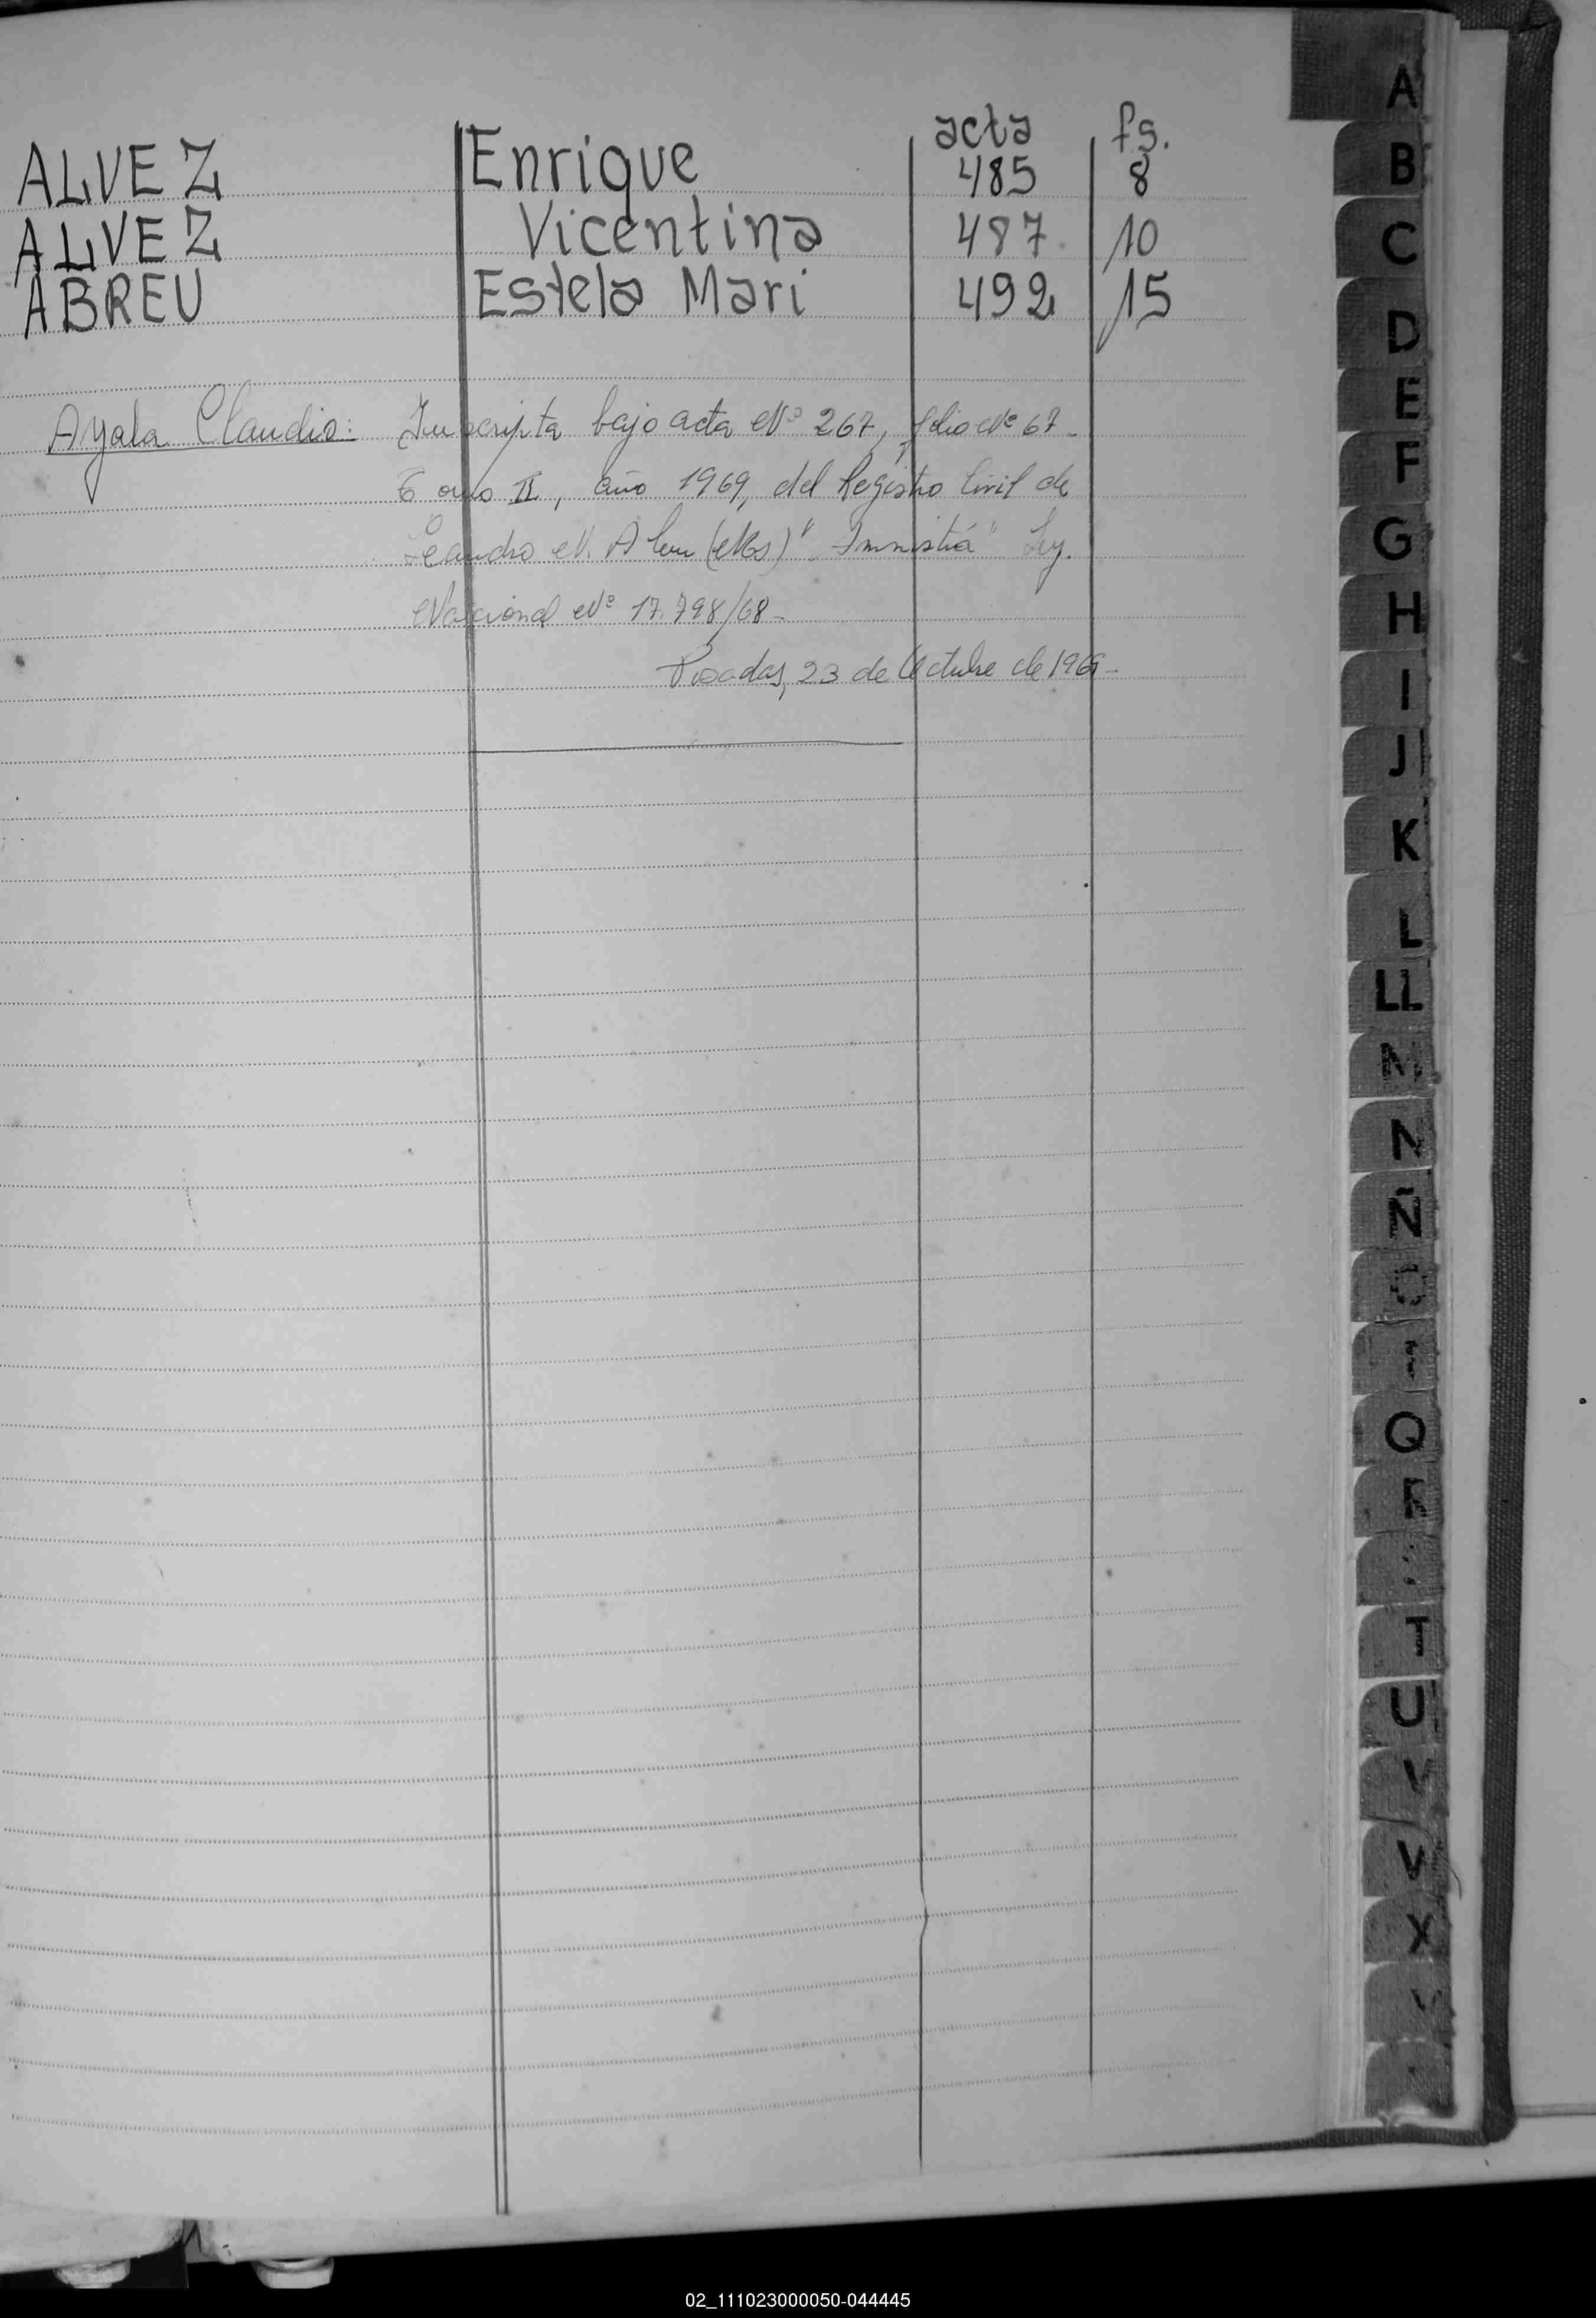 acta fs.
ALVEZ Enrique 485 8
ALVEZ Vicentina 487 10
ABREU Estela Mari 492 15
Ayala Claudio: Inscripta bajo acta Nº 267, folio Nº 67-
Tomo II, año 1969, del Registro Civil de
Leandro N. Alem (Ms) "Amnistía" Ley.
Nacional Nº 17.798/68-
Posadas, 23 de Octubre de 1969-
A
B
C
D
E
F
G
H
I
J
K
L
LL
M
N
Ñ
Q
R
T
U
V
X
02_111023000050-044445